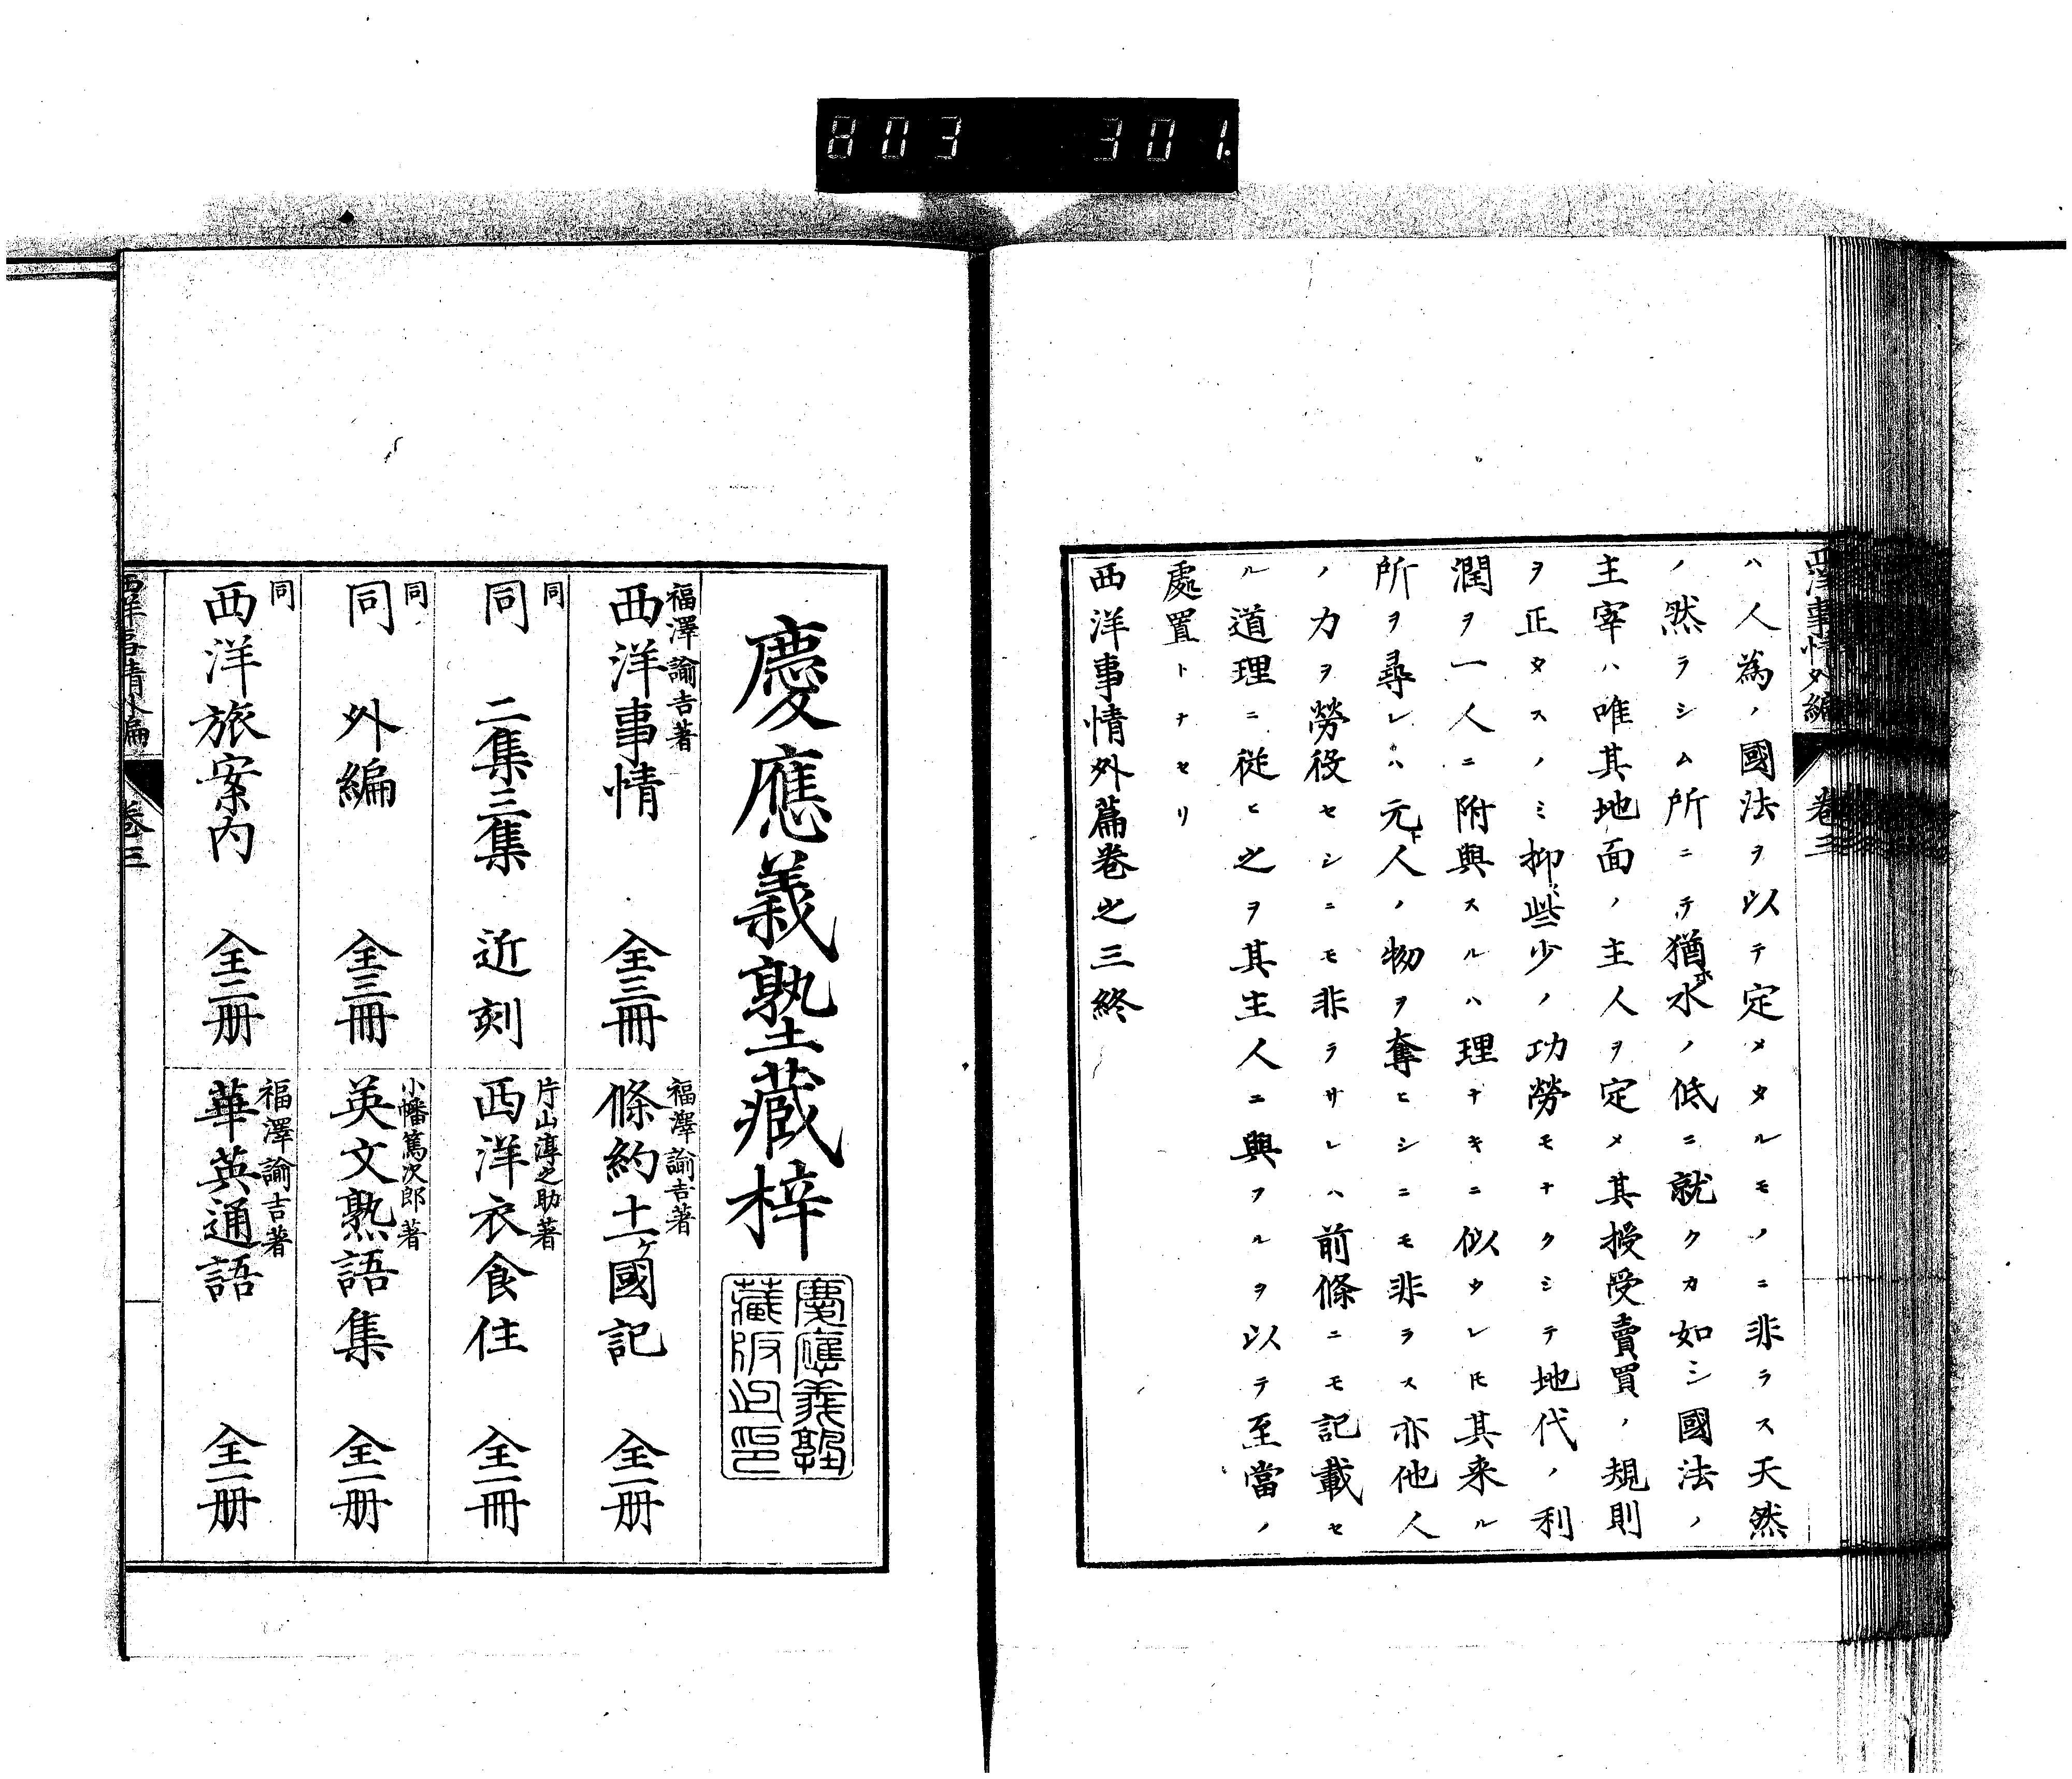 803 301.
西洋事情外編 卷三
ハ人為ノ國法ヲ以テ定メタルモノニ非ラス天然
ノ然ラシム所ニテ猶水ノ低ニ就クカ如シ國法ノ
主宰ハ唯其地面ノ主人ヲ定メ其授受賣買ノ規則
ヲ正タスノミ抑些少ノ功勞モナクシテ地代ノ利
潤ヲ一人ニ附與スルハ理ナキニ似タレ𪜈其来ル
所ヲ尋レハ元人ノ物ヲ奪ヒシニモ非ラス亦他人
ノ力ヲ勞役セシニモ非ラサレハ前條ニモ記載セ
ル道理ニ從ヒ之ヲ其主人ニ與フルヲ以テ至當ノ
處置トナセリ
西洋事情外篇卷之三終
慶應義塾藏梓
慶應義塾
藏版之印
福澤諭吉著
西洋事情 全三冊
福澤諭吉著
條約十一ヶ國記 全一册
同
同 二集三集 近刻
片山淳之助著
西洋衣食住 全一冊
同
同 外編 全三冊
小幡篤次郎著
英文熟語集 全一册
同
西洋旅案内 全二册
福澤諭吉著
華英通語 全一册
西洋事情外編 卷三